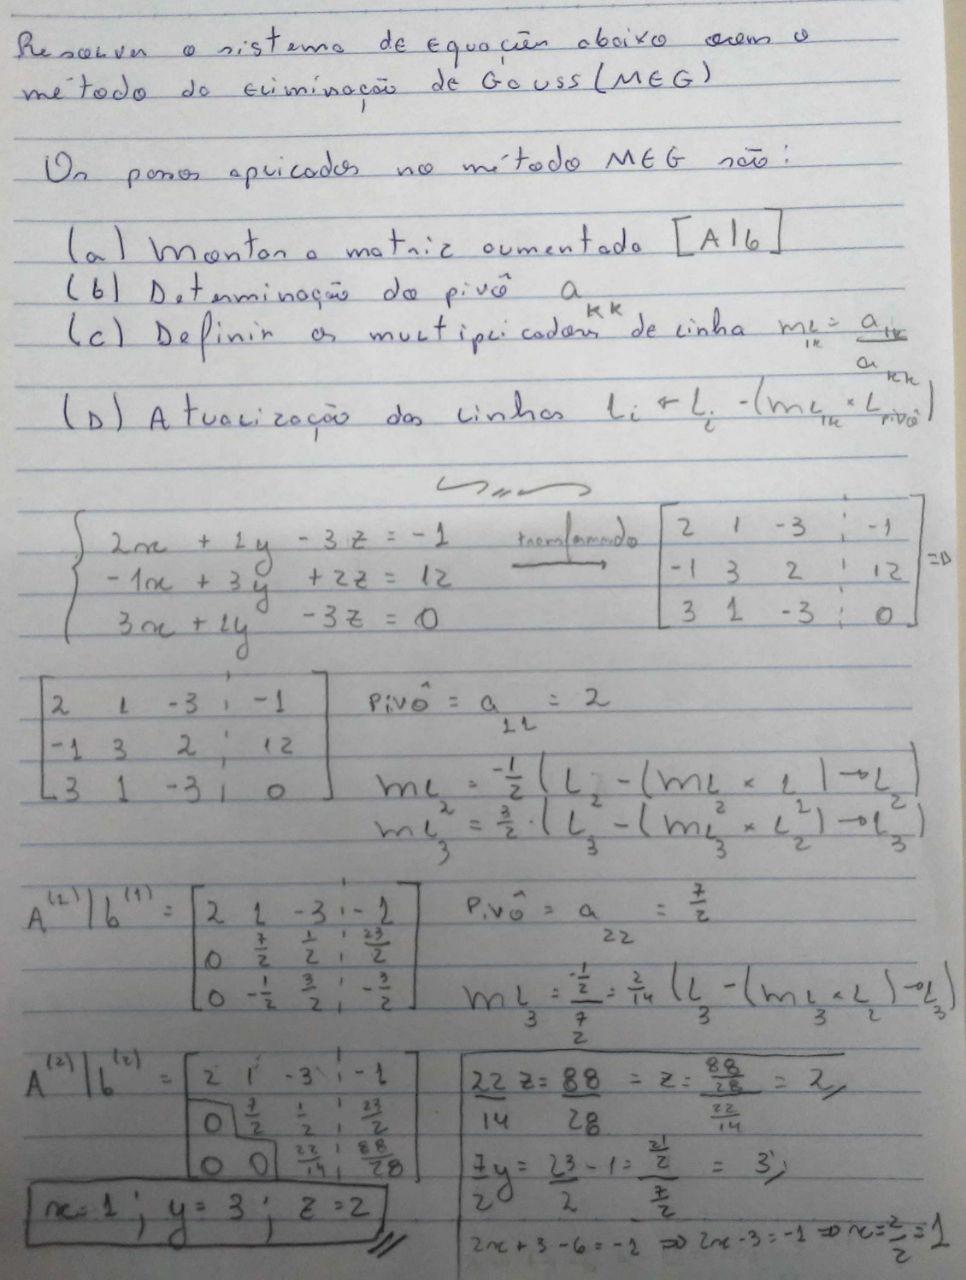 Resolver o sistema de equações abaixo com o
método da eliminação de Gauss (MEG)
Os passos aplicados no método MEG são:
(a) Montar a matriz aumentada [A|b]
(b) Determinação do pivô a_kk
(c) Definir os multiplicadores de linha mL_ik = a_ik / a_kk
(D) Atualização das linhas Li ← L_i - (mL_ik × L_pivô)
2x + 1y - 3z = -1
-1x + 3y + 2z = 12
3x + 1y - 3z = 0
transformando
2 1 -3 ¦ -1
-1 3 2 ¦ 12
3 1 -3 ¦ 0
⇒
2 1 -3 ¦ -1
-1 3 2 ¦ 12
3 1 -3 ¦ 0
Pivô = a_11 = 2
mL_2 = -1/2 (L_2 - (mL_2 × L_1) → L_2)
mL_3 = 3/2 · (L_3 - (mL_3 × L_1) → L_3)
A^(1)|b^(1) =
2 1 -3 ¦ -1
0 7/2 1/2 ¦ 23/2
0 -1/2 3/2 ¦ -3/2
Pivô = a_22 = 7/2
mL_3 = (-1/2)/(7/2) = 2/14 (L_3 - (mL_3 × L_2) → L_3)
A^(2)|b^(2) =
2 1 -3 ¦ -1
0 7/2 1/2 ¦ 23/2
0 0 22/14 ¦ 88/28
22/14 z = 88/28 = z = (88/28)/(22/14) = 2
7/2 y = 23/2 - 1 = (21/2)/(7/2) = 3
2x + 3 - 6 = -1 ⇒ 2x - 3 = -1 ⇒ x = 2/2 = 1
x = 1 ; y = 3 ; z = 2